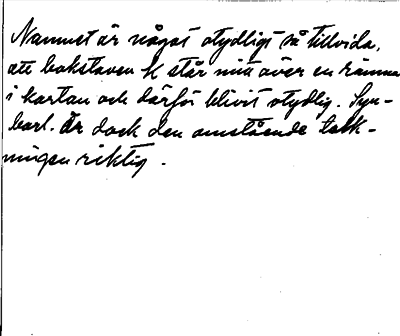 Namnet är något otydligt så tillvida,
att bokstaven k står mitt över en ränna
i kartan och därför blivit otydlig. Syn-
barl. är dock den omstående tolk-
ningen riktig.